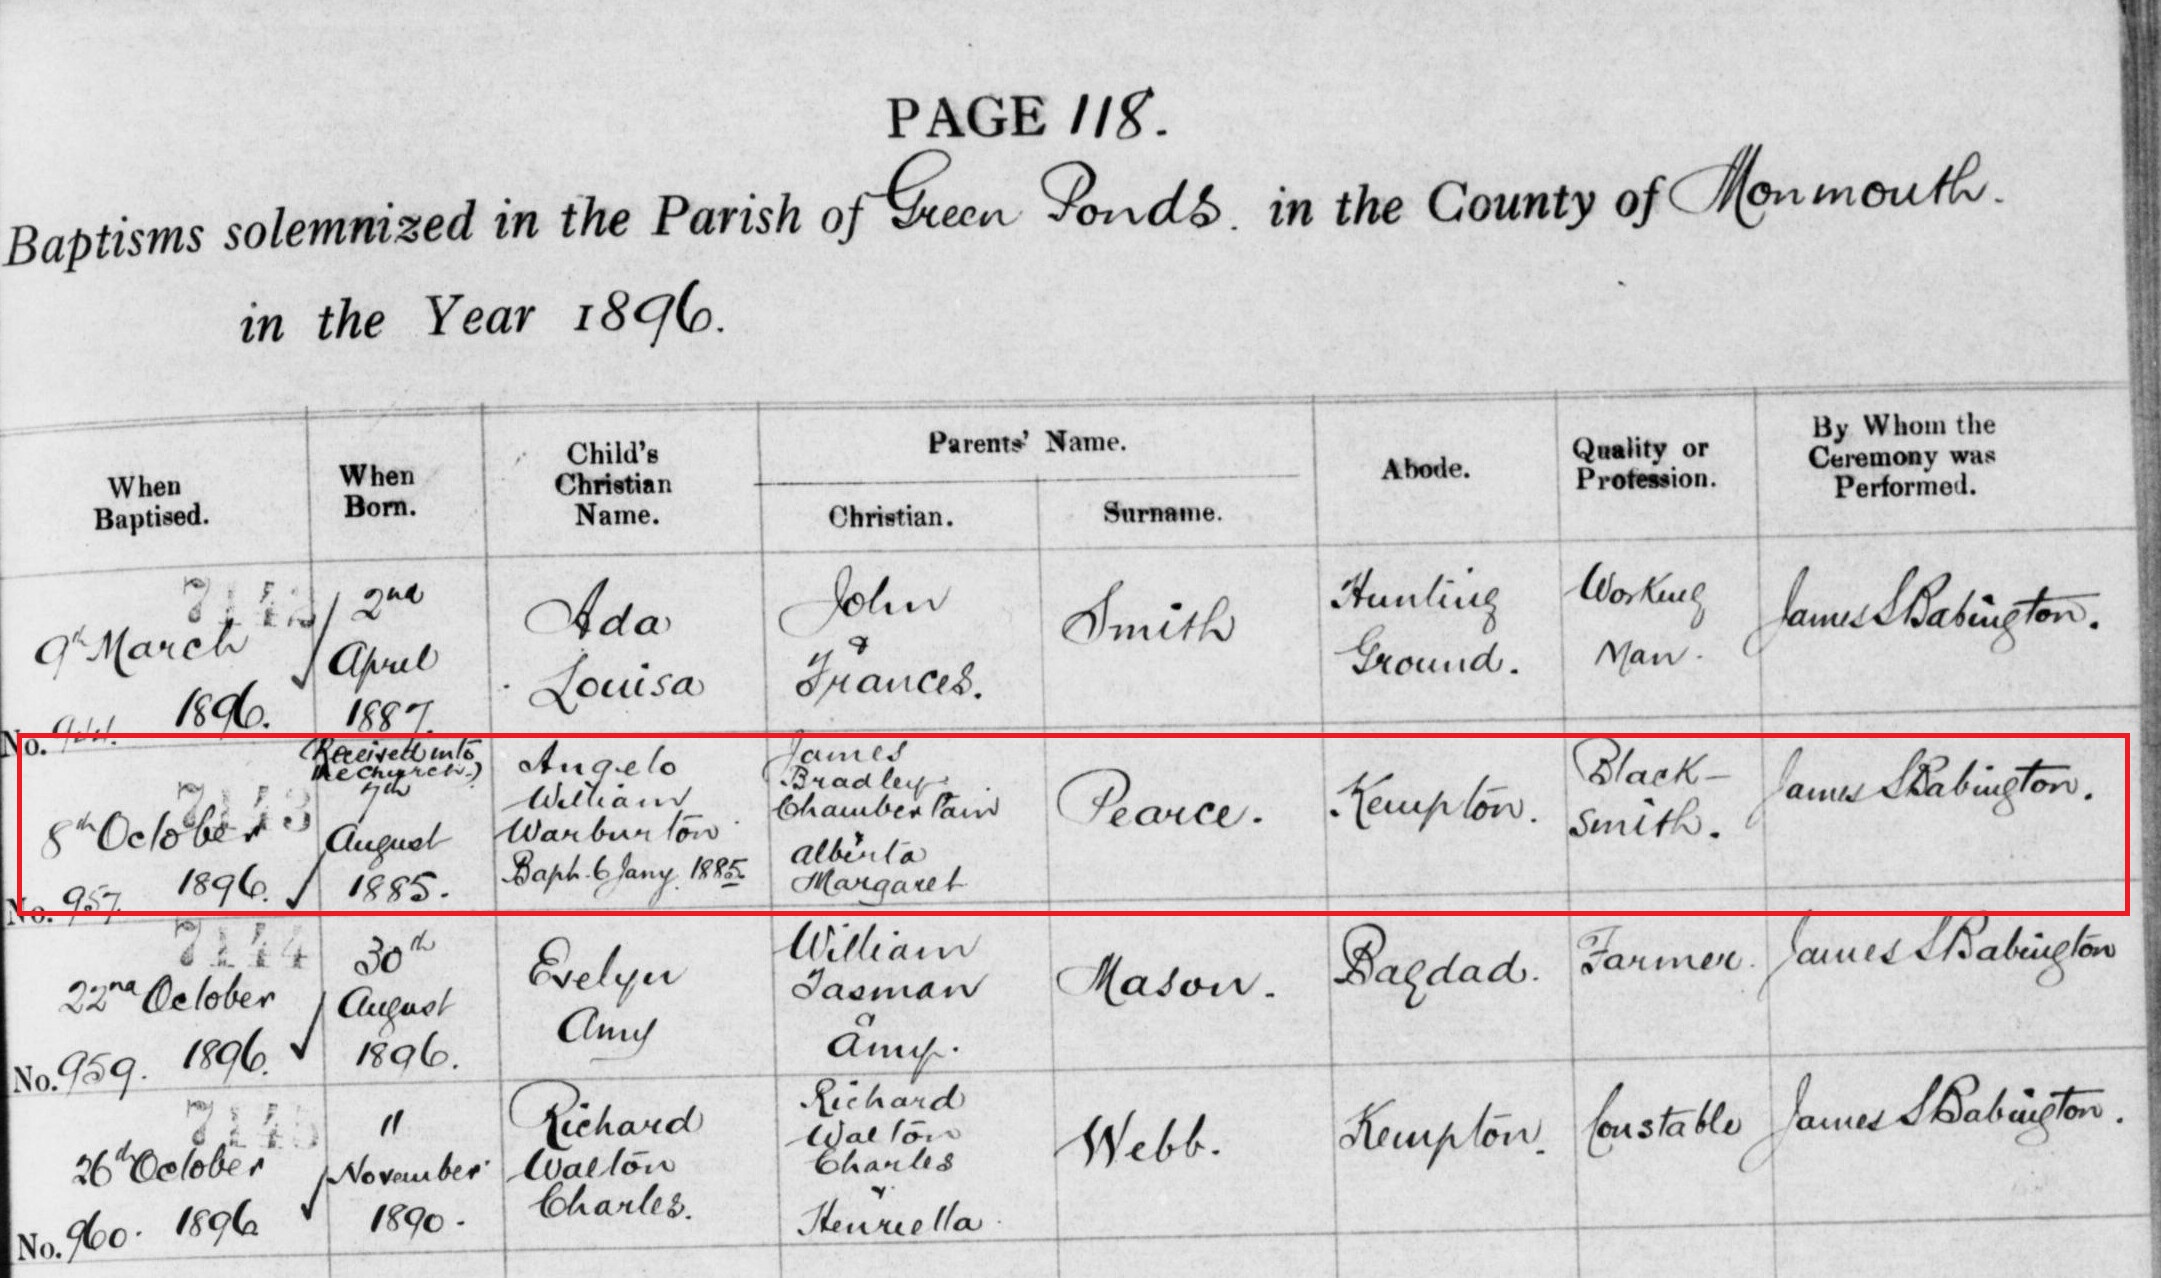 PAGE 118.
Baptisms solemnized in the Parish of Green Ponds. in the County of Monmouth.
in the Year 1896.
When Baptised.
When Born.
Child's Christian Name.
Parents' Name.
Christian.
Surname.
Abode.
Quality or Profession.
By Whom the Ceremony was Performed.
7142
9th March
1896.
No. 944.
2nd
April
1887.
Ada
Louisa
John
&
Frances.
Smith
Hunting
Ground.
Working
Man.
James S Babington.
7143
8th October
1896.
No. 957.
(Received into
the church.)
7th
August
1885.
Angelo
William
Warburton
Bapt. 6 Jany. 1885
James
Bradley
Chambertain
&
Alberta
Margaret
Pearce.
Kempton.
Black-
smith.
James S Babington.
7144
22nd October
1896.
No. 959.
30th
August
1896.
Evelyn
Amy
William
Tasman
&
Amy.
Mason.
Bagdad.
Farmer.
James S Babington
7145
26th October
1896
No. 960.
11
November
1890.
Richard
Walton
Charles.
Richard
Walton
Charles
&
Henriella
Webb.
Kempton.
Constable
James S Babington.